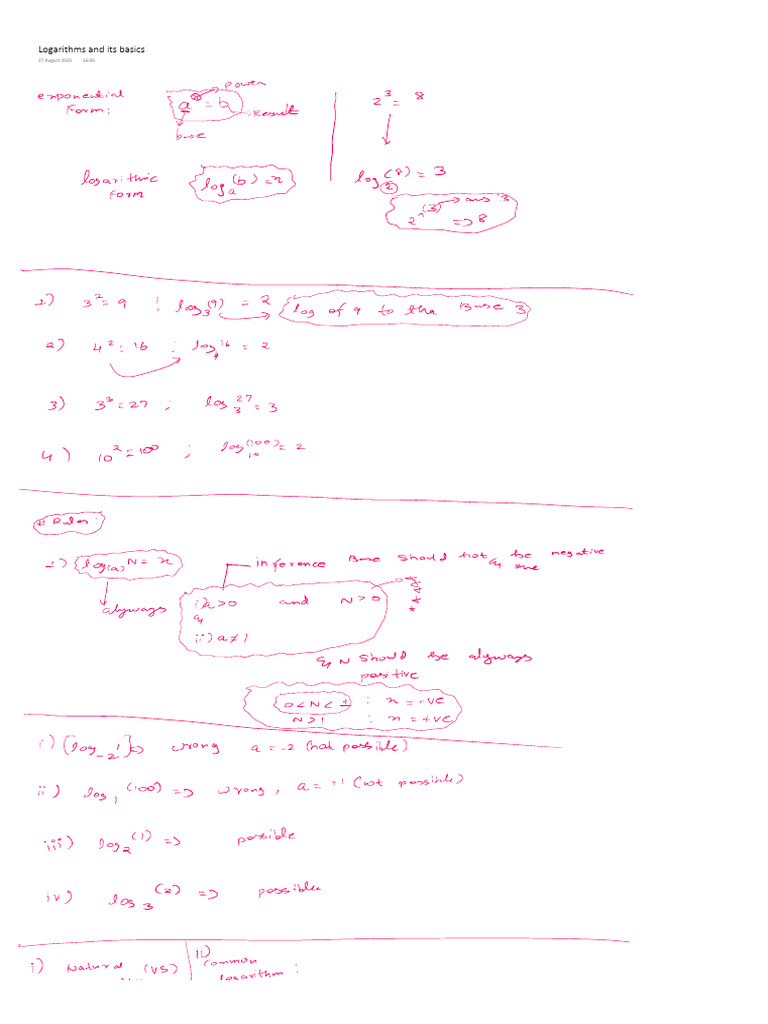 Logarithms and its basics
27 August 2023 16:06
exponential Form: a^x = b → Power
: Result
base
2^3 = 8
logarithmic Form log_a(b) = x
log_2(8) = 3
2^(3) → ans 3
=> 8
1) 3^2 = 9 ; log_3(9) = 2 log of 9 to the Base 3
2) 4^2 = 16 ; log_4 16 = 2
3) 3^3 = 27 ; log_3 27 = 3
4) 10^2 = 100 ; log_10(100) = 2
* Rules:
1) log_(a) N = x
inference Base should not be negative & one
alyways
i) a > 0 and N > 0 ****
&
ii) a ≠ 1
& N should be alyways positive
0 < N < 1 : x = -ve
N > 1 : x = +ve
i) [log_-2 1] => wrong a = -2 (not possible)
ii) log_1(100) => wrong, a = 1 (not possible)
iii) log_2(1) => possible
iv) log_3(2) => possible
i) Natural (VS)
II) Common logarithm :